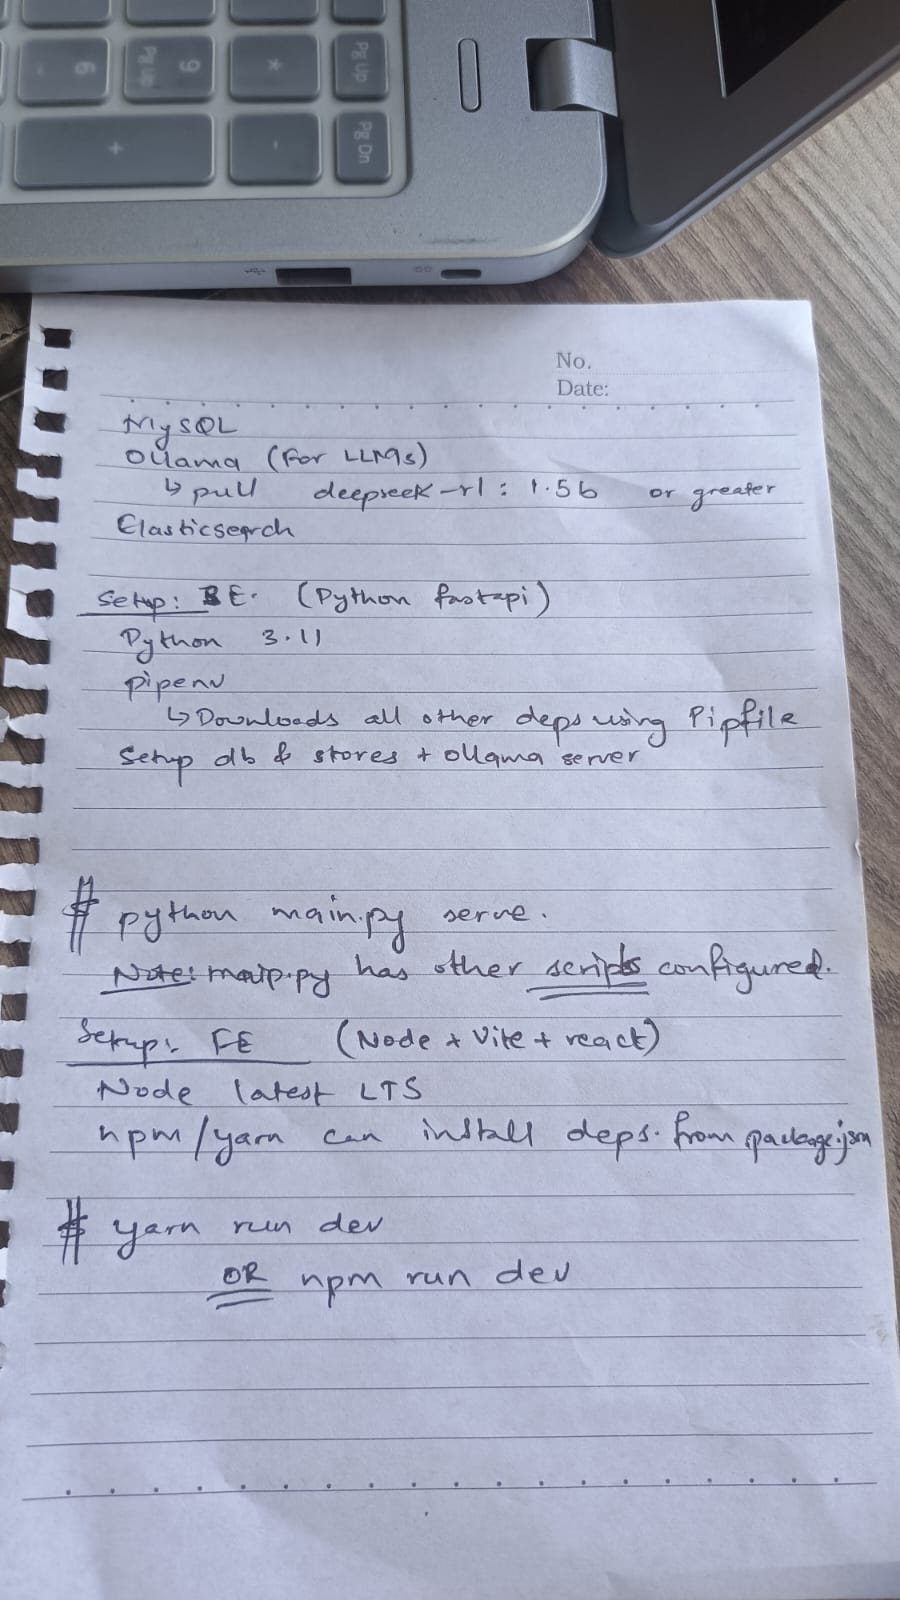 6
9
Pg Up
*
Pg Up
+
-
Pg Dn
No.
Date:
MySQL
Ollama (For LLMs)
↳ pull deepseek-r1: 1.5b or greater
Elasticsearch
Setup: BE. (Python fastapi)
Python 3.11
pipenv
↳ Downloads all other deps using Pipfile
Setup db & stores + ollama server
# python main.py serve.
Note: main.py has other scripts configured.
Setup: FE (Node + Vite + react)
Node latest LTS
npm/yarn can install deps. from package.json
# yarn run dev
OR npm run dev